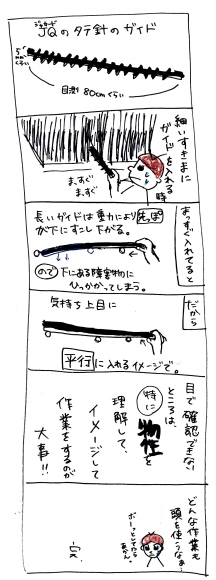 ジャカード
JQのタテ針のガイド
5mmくらい
目測80cmくらい
細いすきまに
ガイドを入れる
時
まっすぐ
まっすぐ
まっすぐ入れてると
長いガイドは重力により先っぽ
が下にすこし下がる。
ので下にある障害物に
ひっかかってしまう。
だから
気持ち上目に
平行に入れるイメージで。
目で確認できない
ところは、
特に物性を
理解して、
イメージして
作業をするのが
大事!!
どんな作業も
頭を使うなぁ…
ボーっとしてたら
あかん。
完